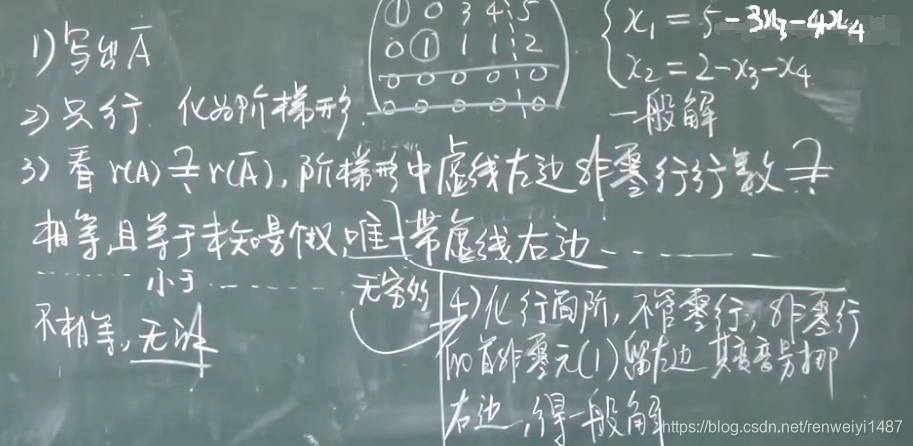 ① 0 3 4 5
0 ① 1 1 2
0 0 0 0 0
0 0 0 0 0
x₁ = 5 - 3x₃ - 4x₄
x₂ = 2 - x₃ - x₄
一般解
1) 写出Ā
2) 只行 化为阶梯形.
3) 看 r(A) ≟ r(Ā), 阶梯形中虚线左边非零行行数 ≟
带虚线右边 ------
相等,且等于未知量个数,唯一
------ 小于 ------ 无穷多
不相等, 无解
4) 化行简阶, 不管零行, 非零行
的首非零元(1)留左边 其变号挪
右边, 得一般解
https://blog.csdn.net/renweiyi1487